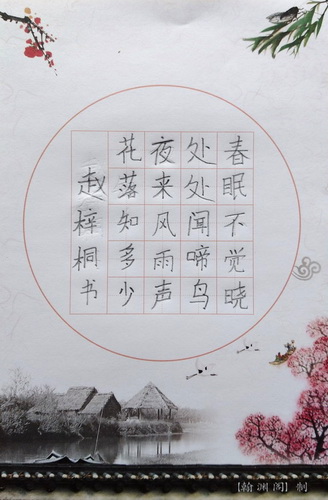 春眠不觉晓
处处闻啼鸟
夜来风雨声
花落知多少
赵梓桐书
【翰渊阁】制